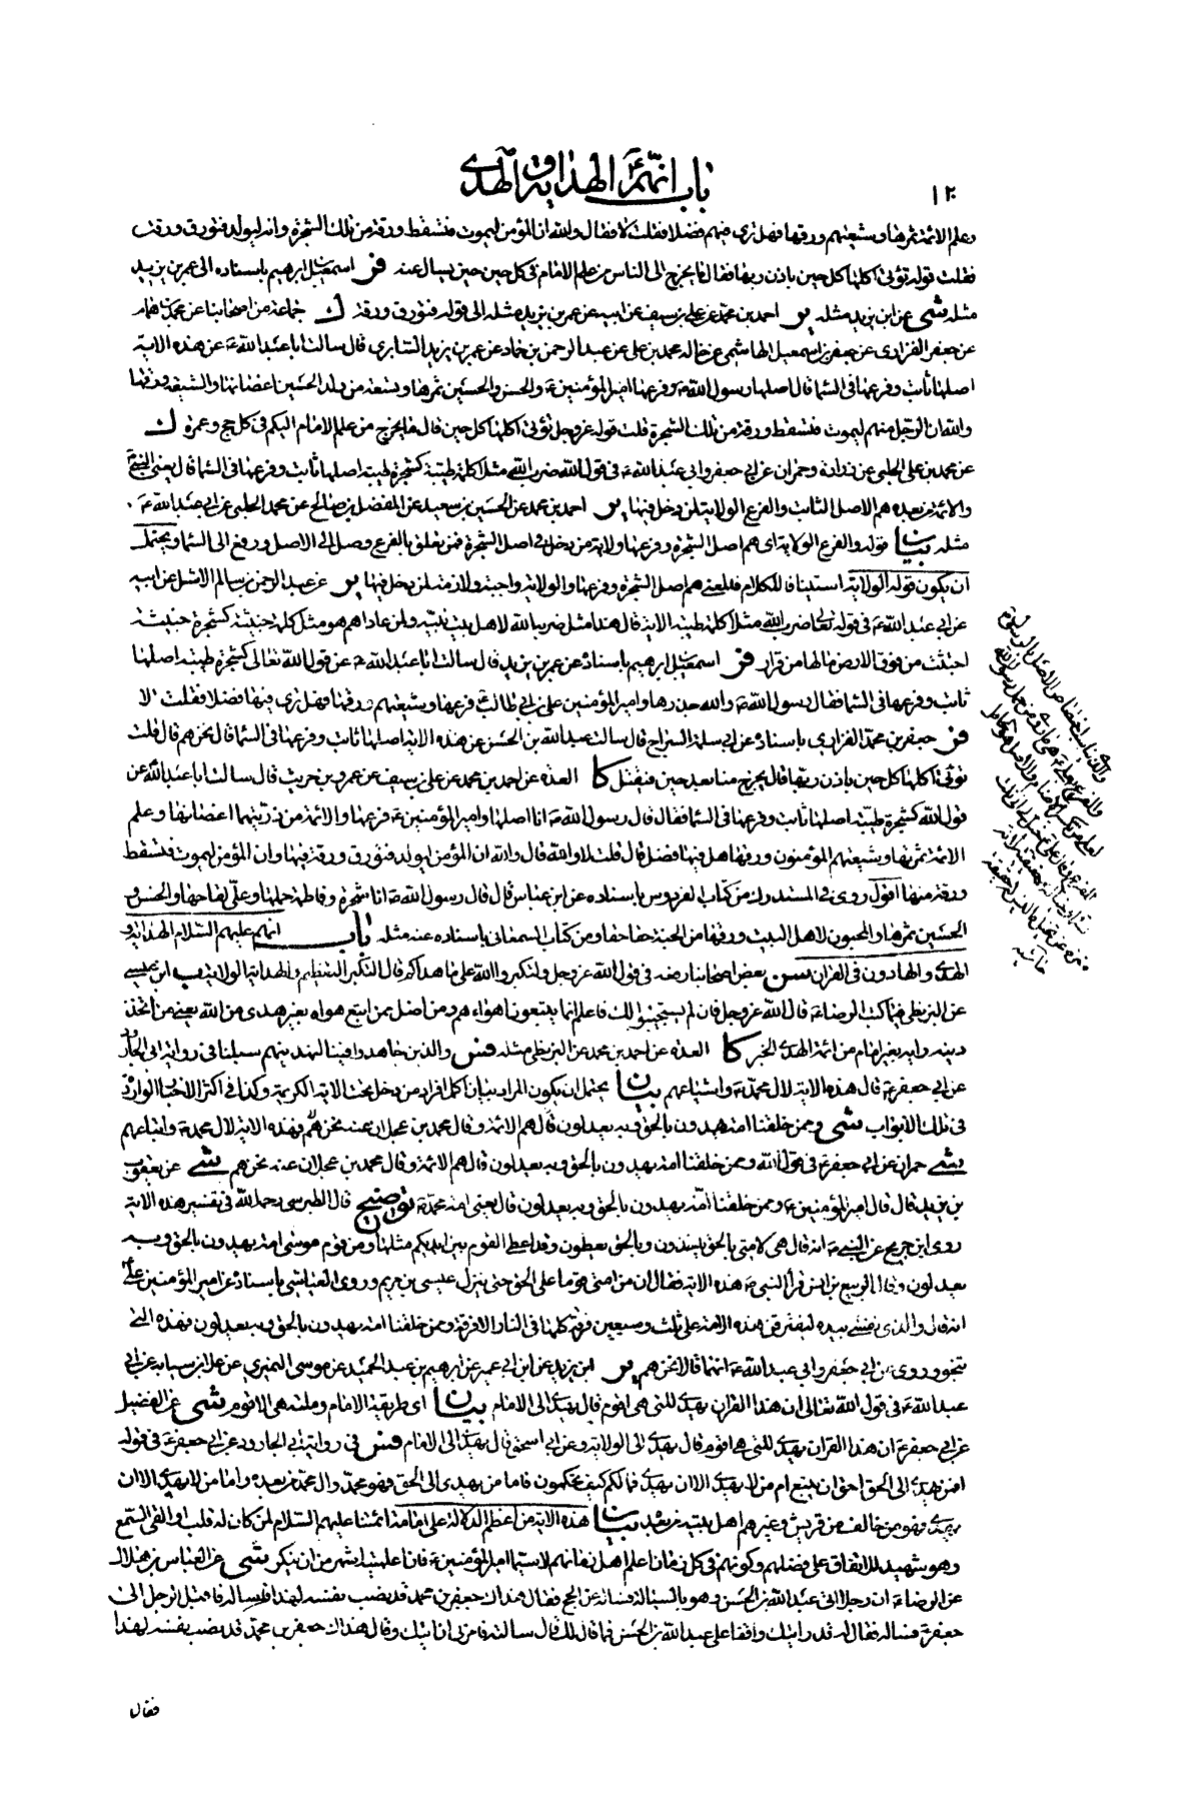 باب انهم عليهم السلام الهداية والهدى
١٢٠
وعلم الائمة ثمرها وشيعتهم ورقها فهل ترى فيهم فضلا فقلت لا فقال والله ان المؤمن ليموت فتسقط ورقة من تلك الشجرة وانه ليولد فتورق ورقة
فقلت قوله تؤتى اكلها كل حين باذن ربها فقال ما يخرج الى الناس من علم الامام في كل حين حين يسال عنه فر اسمعيل بن ابرهيم باسناده الى عمر بن يزيد
مثله شى عن ابن يزيد مثله ير احمد بن محمد عن علي بن سيف عن ابيه عن عمر بن يزيد مثله الى قوله فتورق ورقة ك جماعة من اصحابنا عن محمد بن همام
عن جعفر الفزارى عن جعفر بن اسمعيل الهاشمي عن خاله محمد بن علي عن عبد الرحمن بن حماد عن عمر بن يزيد السابرى قال سالت ابا عبد الله ع عن هذه الاية
اصلها ثابت وفرعها في السما قال اصلها رسول الله ص وفرعها امير المؤمنين ع والحسن والحسين ثمرها وتسعة من ولد الحسين اغصانها والشيعة ورقها
والله ان الرجل منهم ليموت فتسقط ورقة من تلك الشجرة قلت قوله عز وجل تؤتى اكلها كل حين قال ما يخرج من علم الامام اليكم في كل حج وعمرة ك
عن محمد بن علي الحلبي عن زرارة وحمران عن ابي جعفر وابي عبد الله ع في قول الله ضرب الله مثلا كلمة طيبة كشجرة طيبة اصلها ثابت وفرعها في السما قال يعنى النبي ص
والائمة من بعده هم الاصل الثابت والفرع الولاية لمن دخل فيها ير احمد بن محمد عن الحسين بن سعيد عن المفضل بن صالح عن محمد الحلبي عن ابي عبد الله ع
مثله بيان قوله والفرع الولاية اى هم اصل الشجرة وفرعها ولاية من دخل في اصل الشجرة فمن تعلق بالفرع وصل الى الاصل ورفع الى السما ويحتمل
ان يكون قوله الولاية استينافا للكلام فالمعنى هم اصل الشجرة وفرعها والولاية واجبة ولازمة لمن دخل فيها ير عن عبد الرحمن بن سالم الاشل عن ابيه
عن ابي عبد الله ع في قوله تعالى ضرب الله مثلا كلمة طيبة الاية قال هذا مثل ضربه الله لاهل بيت نبيه ولمن عاداهم هو مثل كلمة خبيثة كشجرة خبيثة
اجتثت من فوق الارض ما لها من قرار فر اسمعيل بن ابرهيم باسناده عن عمر بن يزيد قال سالت ابا عبد الله ع عن قول الله تعالى كشجرة طيبة اصلها
ثابت وفرعها في السما فقال رسول الله ص والله جذرها وامير المؤمنين علي بن ابي طالب ع فرعها وشيعتهم ورقها فهل ترى فيها فضلا فقلت لا
فر جعفر بن محمد الفزارى باسناده عن ابي سلمة السراج قال سالت عبد الله بن الحسن عن هذه الاية اصلها ثابت وفرعها في السما قال نحن هم قال قلت
تؤتى اكلها كل حين باذن ربها قال يخرج منا بعد حين فيقتل كا العدة عن احمد بن محمد عن علي بن سيف عن عمرو بن حريث قال سالت ابا عبد الله ع عن
قول الله كشجرة طيبة اصلها ثابت وفرعها في السما فقال قال رسول الله ص انا اصلها وامير المؤمنين ع فرعها والائمة من ذريتهما اغصانها وعلم
الائمة ثمرتها وشيعتهم المؤمنون ورقها هل فيها فضل قال قلت لا والله قال والله ان المؤمن ليولد فتورق ورقة فيها وان المؤمن ليموت فتسقط
ورقة منها اقول روى في المستدرك من كتاب الفردوس باسناده عن ابن عباس قال قال رسول الله ص انا شجرة وفاطمة حملها وعلي لقاحها والحسن و
الحسين ثمرها والمحبون لاهل البيت ورقها من الجنة حقا حقا ومن كتاب السمعاني باسناده عنه مثله باب انهم عليهم السلام الهداية و
الهدى والهادون في القران سن بعض اصحابنا رفعه في قول الله عز وجل ولتكبروا الله على ما هداكم قال التكبير التعظيم والهداية الولاية ب ابن عيسى
عن البزنطي فيما كتب الرضا ع قال الله عز وجل فان لم يستجيبوا لك فاعلم انما يتبعون اهواءهم ومن اضل ممن اتبع هواه بغير هدى من الله يعنى من اتخذ
دينه رايه بغير امام من ائمة الهدى الخبر كا العدة عن احمد بن محمد عن البزنطي مثله فس والذين جاهدوا فينا لنهدينهم سبلنا في رواية ابي الجارود
عن ابي جعفر ع قال هذه الاية لال محمد ع واشياعهم بيان يحتمل ان يكون المراد بيان اكمل افراد من دخل تحت الاية الكريمة وكذا في اكثر الاخبار الواردة
في تلك الابواب شى وممن خلقنا امة يهدون بالحق وبه يعدلون قال هم الائمة وقال محمد بن عجلان عنه نحن هم فهذه الاية لال محمد ع واتباعهم
شى حمران عن ابي جعفر ع في قول الله وممن خلقنا امة يهدون بالحق وبه يعدلون قال هم الائمة وقال محمد بن عجلان عنه نحن هم شى عن يعقوب
بن يزيد قال قال امير المؤمنين ع وممن خلقنا امة يهدون بالحق وبه يعدلون قال يعنى امة محمد ص توضيح قال الطبرسى رحمه الله في تفسير هذه الاية
روى ابن جريح عن النبي ص انه قال هي لامتي بالحق ياخذون وبالحق يعطون وقد اعطى القوم بين ايديكم مثلها ومن قوم موسى امة يهدون بالحق وبه
يعدلون وقال الربيع بن انس قرأ النبي ص هذه الاية فقال ان من امتى قوما على الحق حتى ينزل عيسى بن مريم وروى العياشي باسناده عن امير المؤمنين علي ع
انه قال والذى نفسي بيده لتفترقن هذه الامة على ثلث وسبعين فرقة كلها في النار الا فرقة وممن خلقنا امة يهدون بالحق وبه يعدلون فهذه التي
تنجو وروى عن ابي جعفر وابي عبد الله ع انهما قالا نحن هم ير ابن يزيد عن ابن ابي عمير عن ابرهيم بن عبد الحميد عن موسى النميري عن علا بن سيابة عن ابي
عبد الله ع في قول الله تعالى ان هذا القران يهدى للتى هي اقوم قال يهدى الى الامام بيان اى طريقة الامام وملته هي الاقوم شى عن الفضيل
عن ابي جعفر ع ان هذا القران يهدى للتى هي اقوم قال يهدى الى الولاية وعن ابي اسحق قال يهدى الى الامام فس في رواية ابي الجارود عن ابي جعفر ع في قوله
افمن يهدى الى الحق احق ان يتبع ام من لا يهدى الا ان يهدى فمالكم كيف تحكمون فاما من يهدى الى الحق فهو محمد وال محمد من بعده واما من لا يهدى الا ان
يهدى فهو من خالف من قريش وغيرهم اهل بيته من بعده بيان هذه الاية من اعظم الدلالة على امامة ائمتنا عليهم السلام لمن كان له قلب او القى السمع
وهو شهيد للاتفاق على فضلهم وكونهم في كل زمان اعلم اهل زمانهم لا سيما امير المؤمنين ع فان اعلميته اشهر من ان ينكر شى عن العباس بن هلال
عن الرضا ع ان رجلا اتى عبد الله بن الحسن وهو بالسبالة فساله عن الحج فقال هذاك جعفر بن محمد قد نصب نفسه لهذا فاساله فاقبل الرجل الى
جعفر ع فساله فقال له قد رايتك واقفا على عبد الله بن الحسن فما قال لك قال سالته فامرني ان اتيك وقال هذاك جعفر بن محمد قد نصب نفسه لهذا
فقال